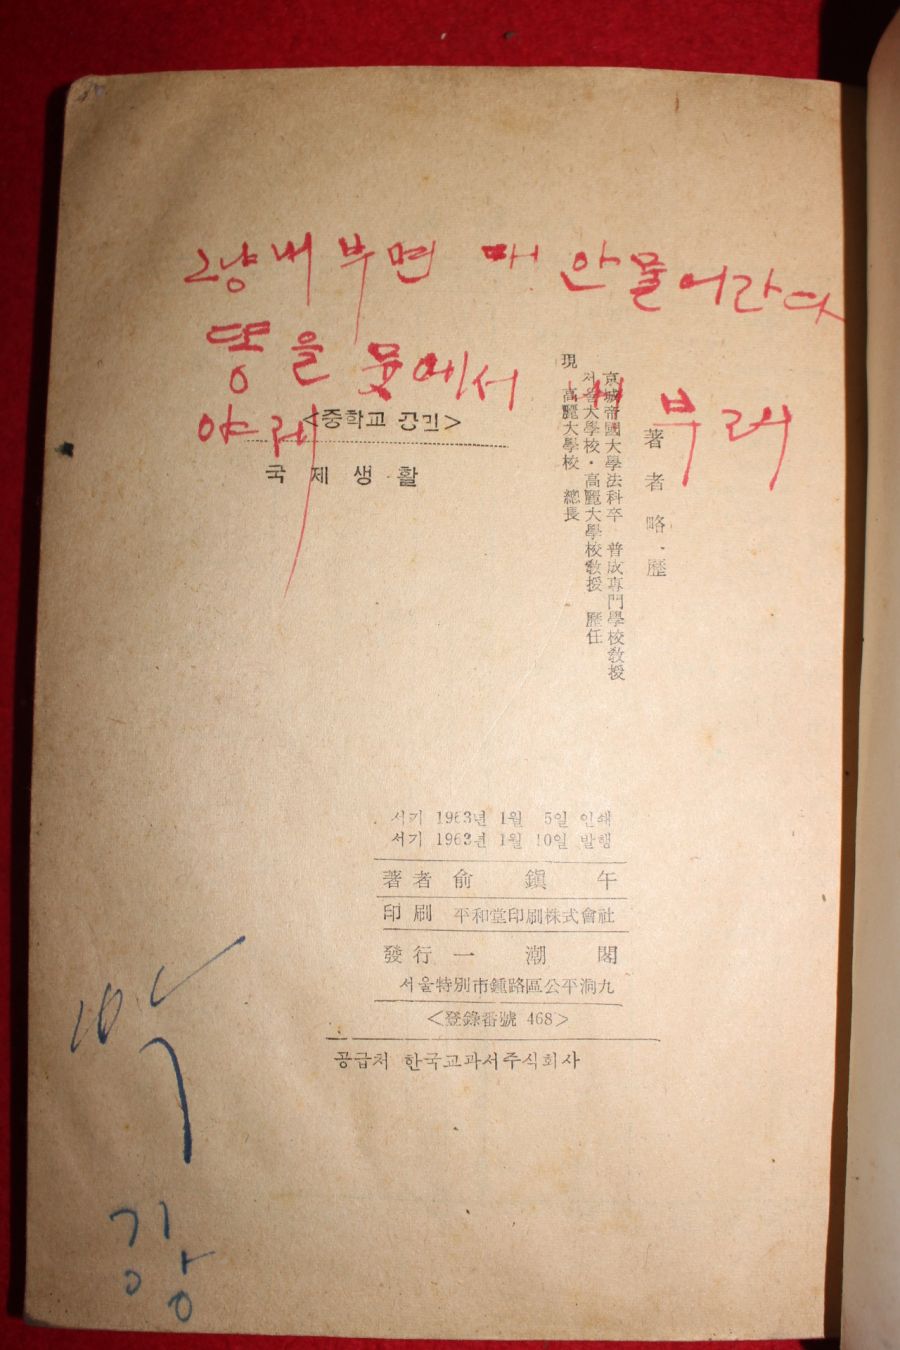 그냥 내 부면 매 안물어 간다
똥을 뭇에서 내 부려
야 레
<중학교 공민>
국제생활
著者略歷
京城帝國大學法科卒 普成專門學校敎授
서울大學校·高麗大學校敎授 歷任
現 高麗大學校 總長
서기 1963년 1월 5일 인쇄
서기 1963년 1월 10일 발행
著者 俞鎭午
印刷 平和堂印刷株式會社
發行 一潮閣
서울特別市鍾路區公平洞九
<登錄番號 468>
공급처 한국교과서주식회사